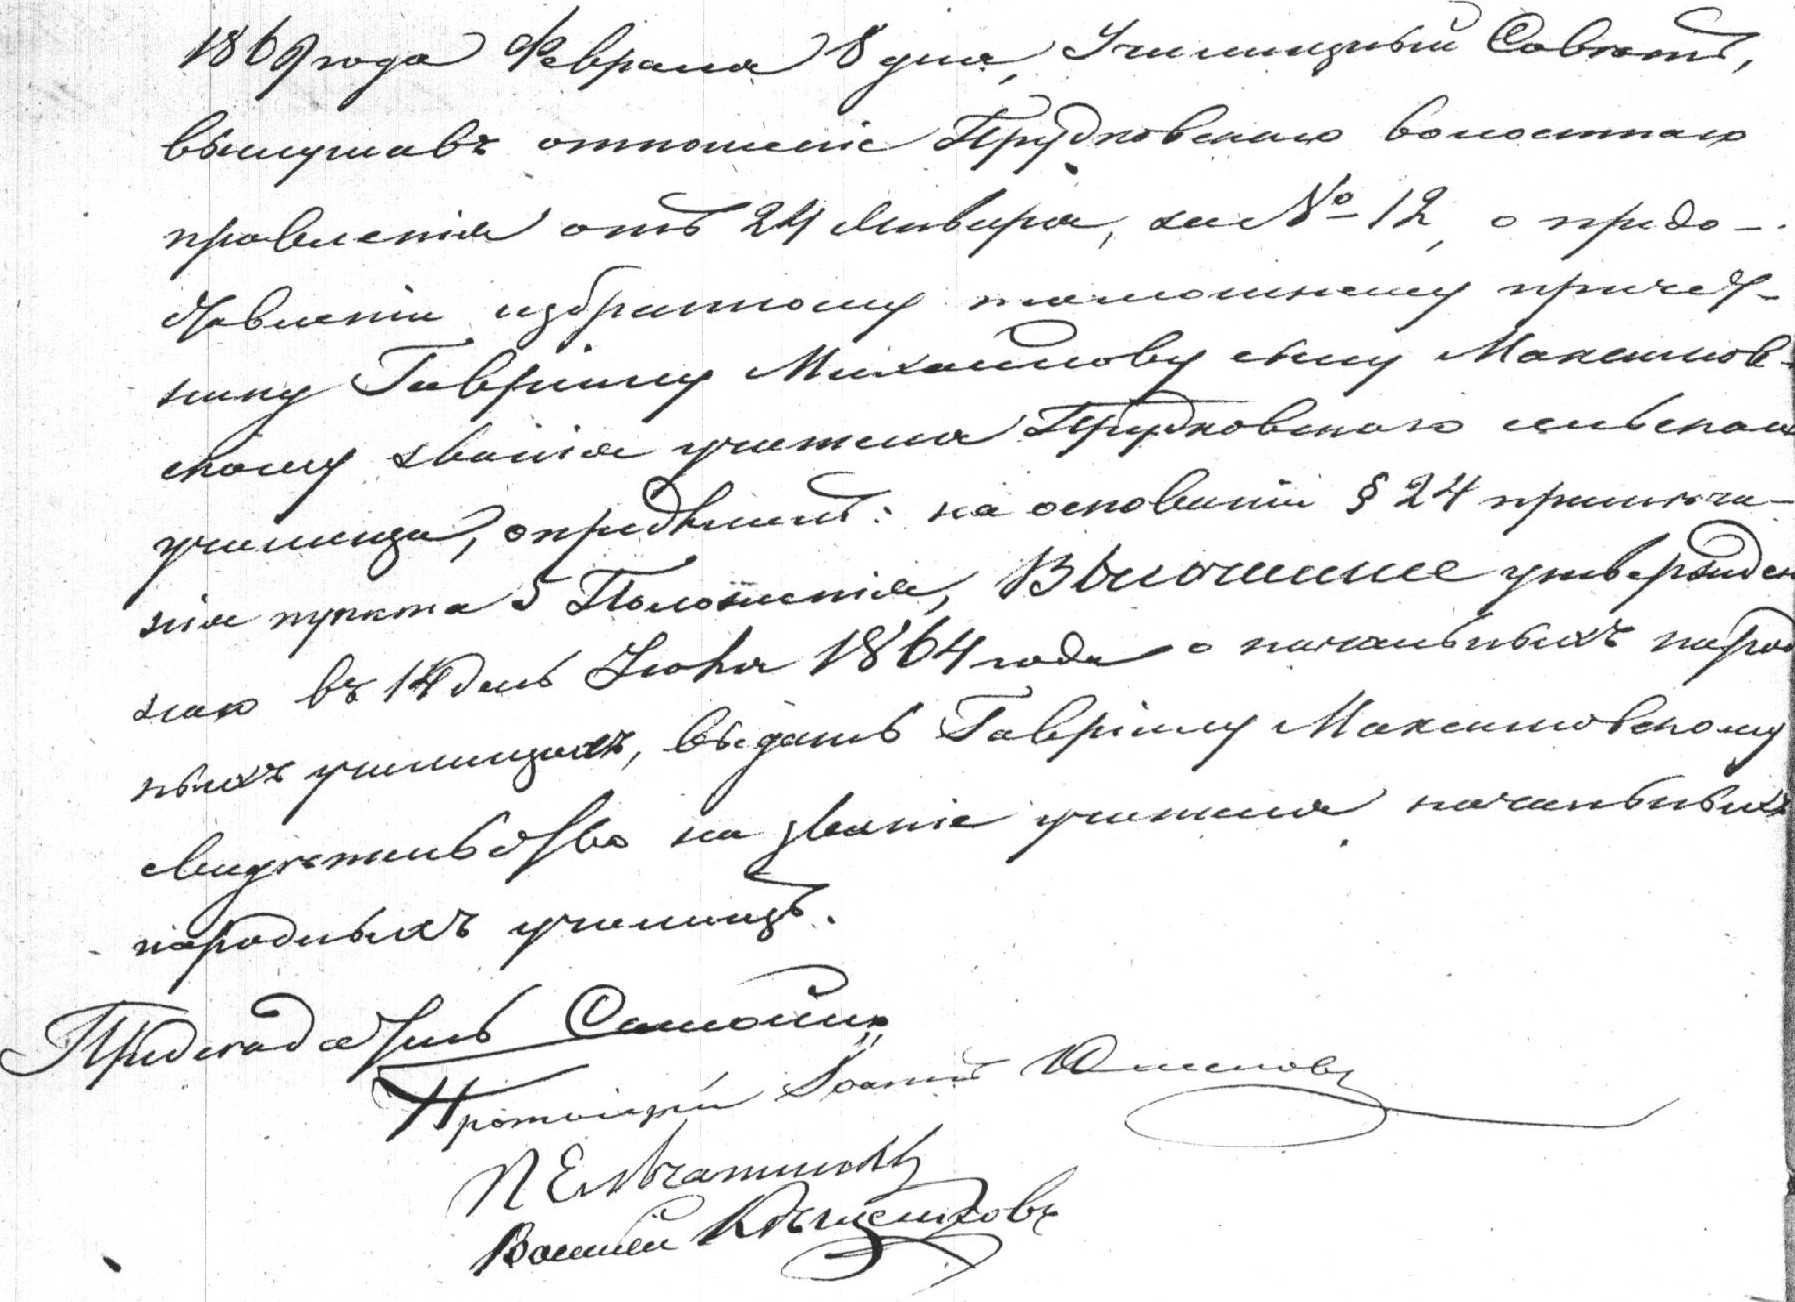 1869 года Февраля 8 дня, Училищный Советъ,
выслушавъ отношеніе Прудковскаго волостнаго
правленія отъ 24 Января, за № 12, о предо-
ставленіи избранному тамошнему причет-
нику Гавріилу Михайлову сыну Максимов-
скому званія учителя Прудковскаго сельскаго
училища, опредѣлилъ: на основаніи § 24 примѣча-
нія пункта 5 Положенія, Высочайше утвержден
наго въ 14 день Іюля 1864 года о начальныхъ народ
ныхъ училищахъ, выдать Гавріилу Максимовскому
свидѣтельство на званіе учителя начальныхъ
народныхъ училищъ.
Предсѣдатель
Протоіерей Іоаннъ
П
Василій